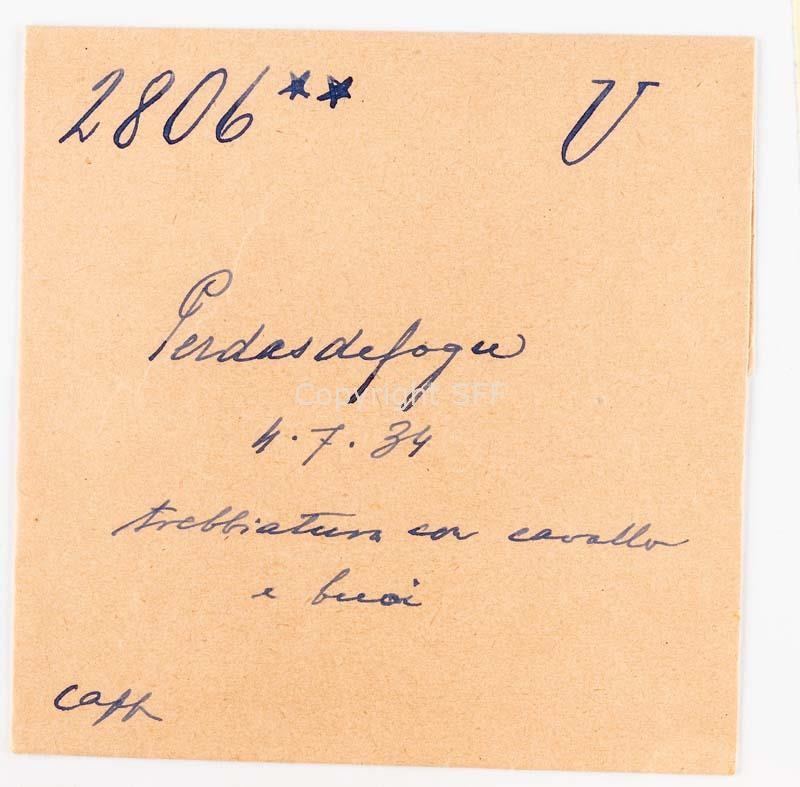 2806** U
Perdasdefogu
Copyright SFF
4.7.34
trebbiatura con cavallo
e buoi